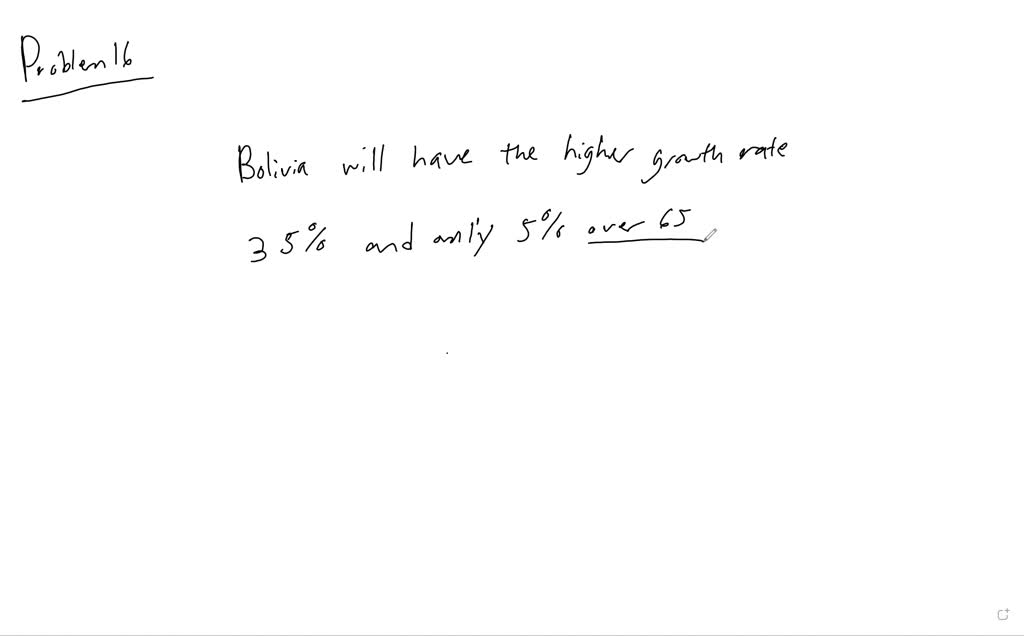 Problem 16
Bolivia will have the higher growth rate
35% and only 5% over 65